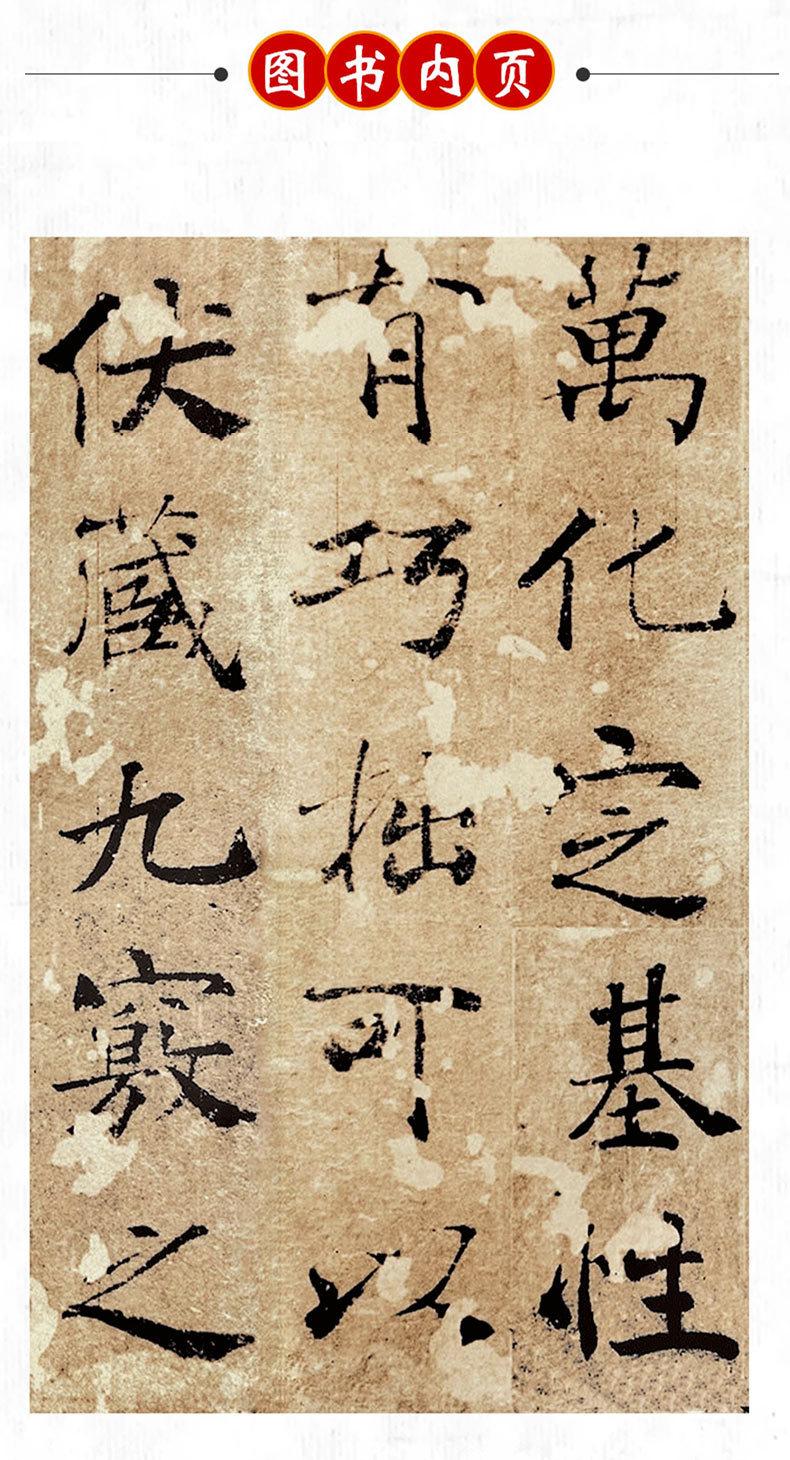 图书内页
萬化定基性
有巧拙可以
伏藏九竅之